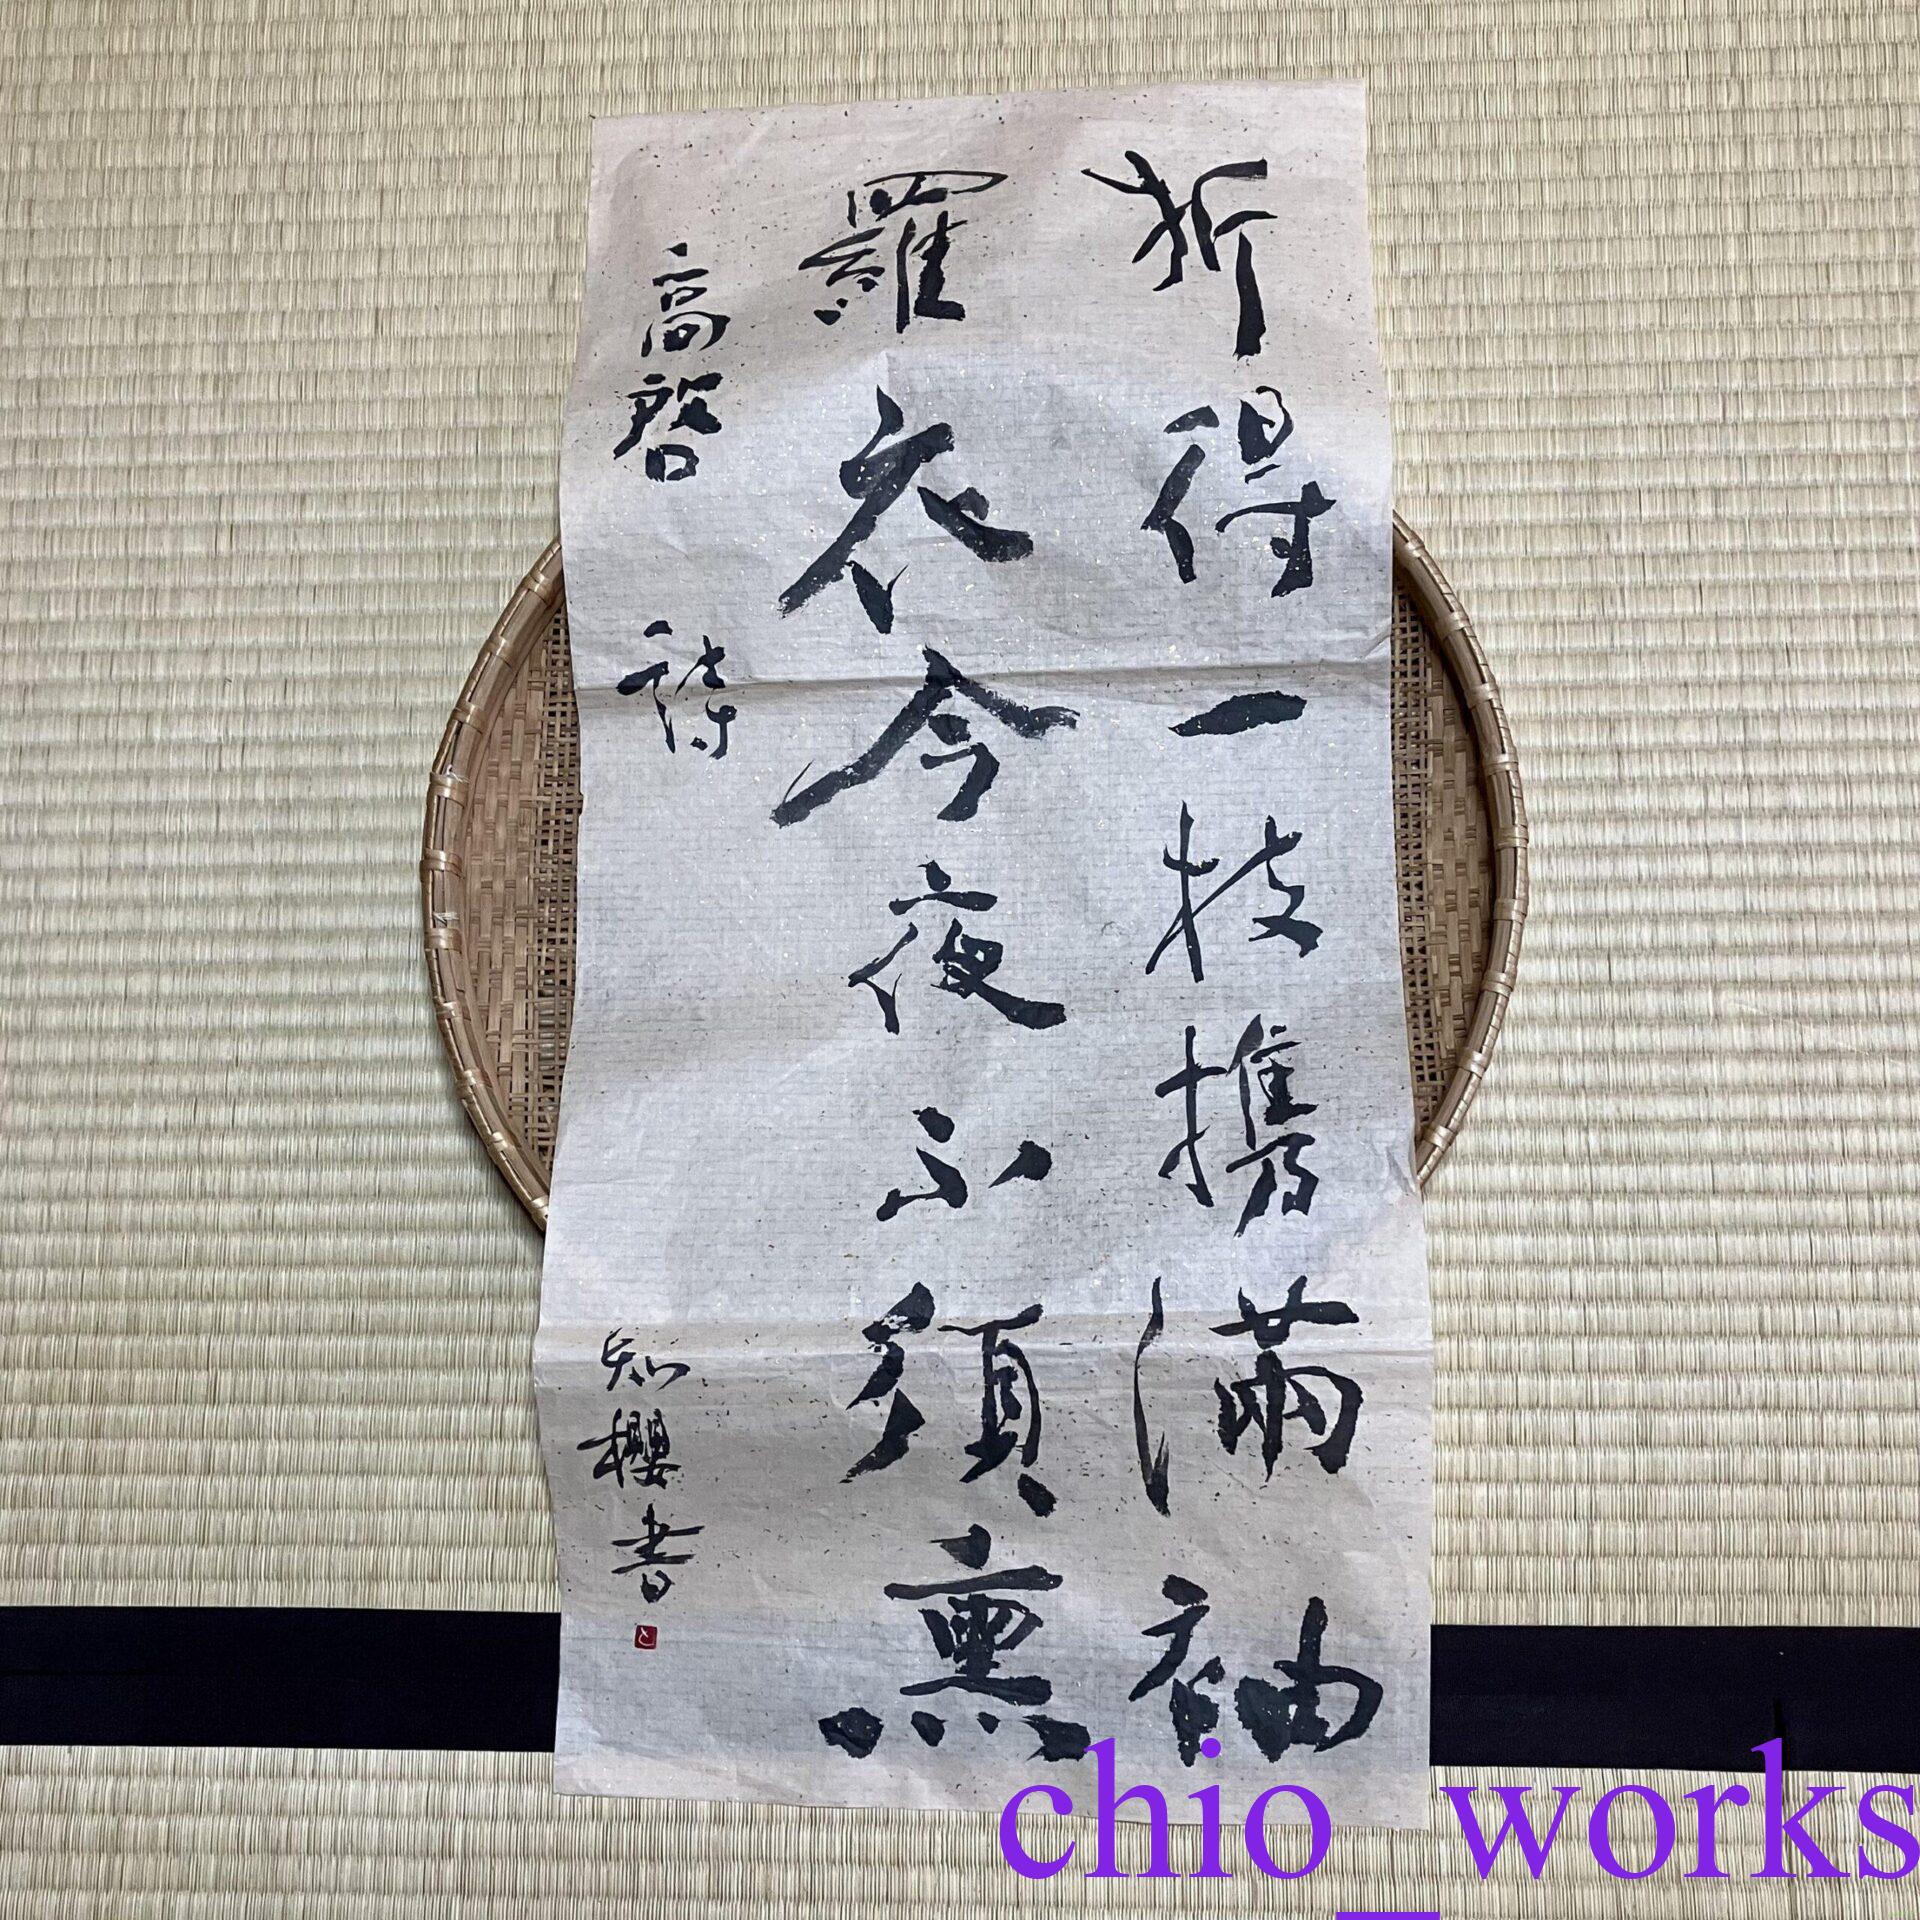 折得一枝攜滿袖
羅衣今夜不須熏
高啓 詩
知櫻書
chio_works